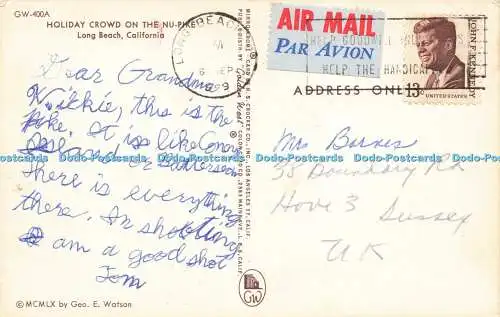 GW-400A
HOLIDAY CROWD ON THE NU-PIKE
Long Beach, California
Dear Grandma
Nickie, this is the
Pike. It is like Coney
Island or Battersea
There is everything
there. In shooting
am a good shot
Tom
© MCMLX by Geo. E. Watson
LONG BEACH
SEP
AIR MAIL
PAR AVION
HELP GOODWILL
HELP THE HANDICAP
ADDRESS ONLY
JOHN F. KENNEDY
13c
UNITED STATES
Mrs Barnes
55 Boundary Rd
Hove 3 Sussex
UK
GW
Dodo-Postcards Dodo-Postcards Dodo-Postcards Dodo-Postcards